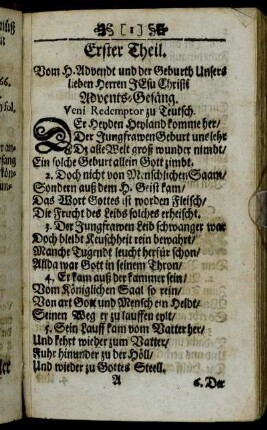 [1]
Erster Theil.
Vom H. Advendt und der Geburth Unsers
lieben Herren JEsu Christi
Advents-Gesäng.
Veni Redemptor zu Teutsch.
Er Heyden Heyland komme her/
Der Jungfrawen Geburt uns lehr
Dz alle Welt groß wunder nimbt/
Ein solche Geburt allein Gott zimbt.
2. Doch nicht von Menschlichen Saam/
Sondern auß dem H. Geist kam/
Das Wort Gottes ist worden Fleisch/
Die Frucht des Leibs solches erheischt.
3. Der Jungfrawen Leib schwanger war
Doch bleibt Keuschheit rein bewahrt/
Manche Tugendt leucht herfür schon/
Allda war Gott in seinem Thron/
4. Er kam auß der kammer sein/
Vom Königlichen Saal so rein/
Von art Gott und Mensch ein Heldt/
Seinen Weg er zu lauffen eylt/
5. Sein Lauff kam vom Vatter her/
Und kehrt wieder zum Vatter/
Fuhr hinunder zu der Höll/
Und wieder zu Gottes Steell.
A 6. Der